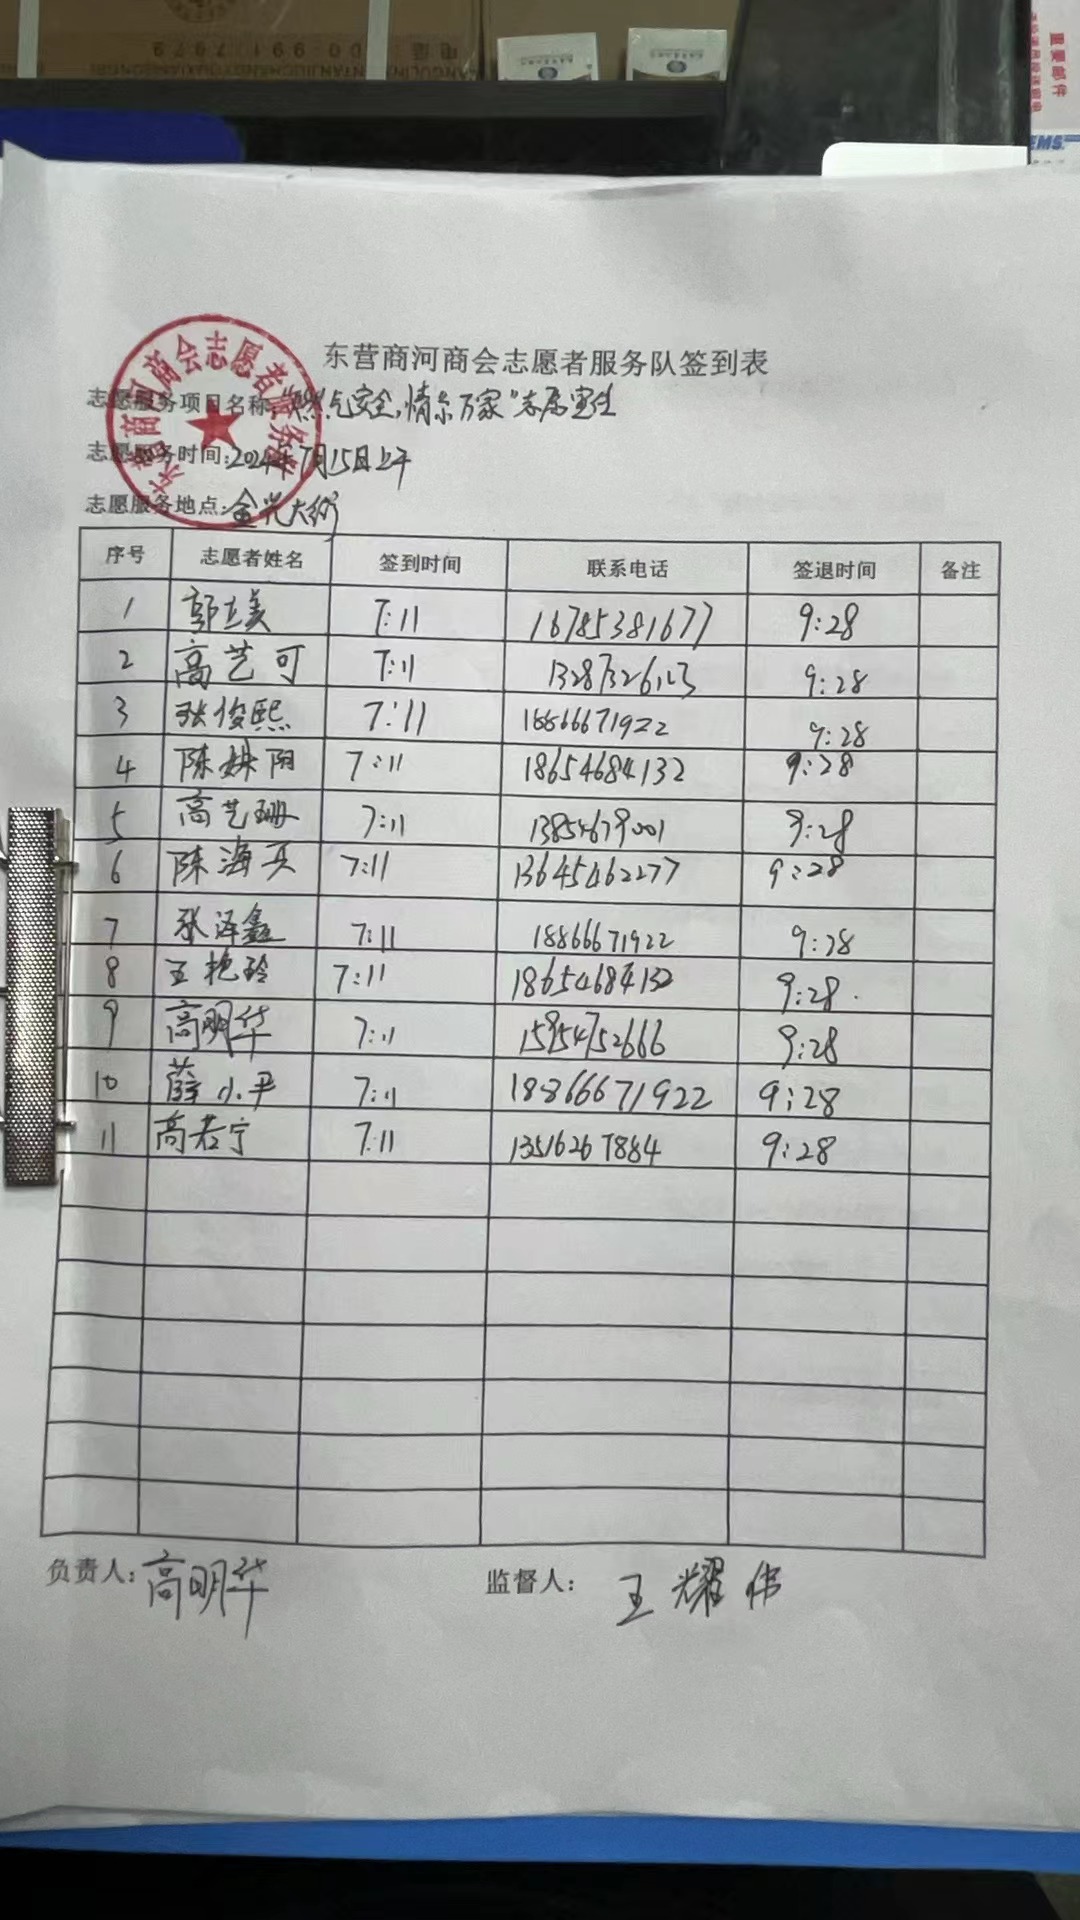 电话 0991-7679
重要邮件
EMS
东营商河商会志愿者服务队签到表
东营商河商会志愿者服务队
志愿服务项目名称:"燃气安全,情系万家"志愿宣传
志愿服务时间:2024年7月15日上午
志愿服务地点:金兴大街
序号 志愿者姓名 签到时间 联系电话 签退时间 备注
1 郭立美 7:11 16785381677 9:28
2 高艺可 7:11 9:28
3 张俊熙 7:11 18866671922 9:28
4 陈姝阳 7:11 18654684132 9:28
5 高艺珊 7:11 13854679001 9:28
6 陈海兵 7:11 13645462277 9:28
7 张泽鑫 7:11 18866671922 9:28
8 王艳玲 7:11 18654684132 9:28.
9 高明华 7:11 15954752666 9:28
10 薛小平 7:11 18866671922 9:28
11 高若宁 7:11 13516267884 9:28
负责人:高明华 监督人:王耀伟